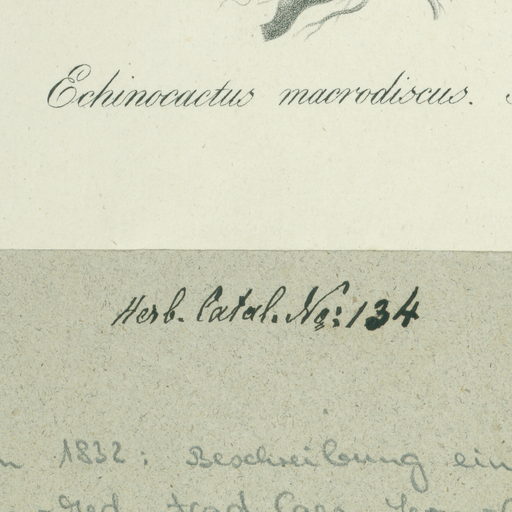 Echinocactus macrodiscus.
Herb. Catal. No: 134
1832: Beschreibung ein
Acad. Caes. Leo.